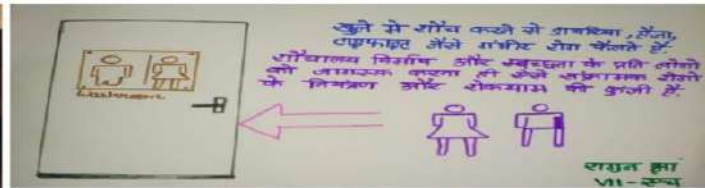 खुले में शौच करने से डायरिया, हैजा,
टाइफाइड जैसे गंभीर रोग फैलते हैं.
शौचालय निर्माण और स्वच्छता के प्रति लोगो
को जागरूक करना ही ऐसे संक्रामक रोगो
के नियंत्रण और रोकथाम की कुंजी है.
झा
VII-